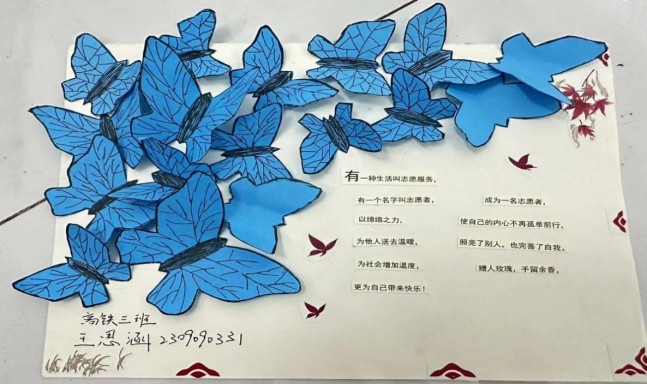 有一种生活叫志愿服务,
有一个名字叫志愿者,
以绵绵之力,
为他人送去温暖,
为社会增加温度,
更为自己带来快乐!
成为一名志愿者,
使自己的内心不再孤单前行,
照亮了别人,也完善了自我,
赠人玫瑰,手留余香,
高铁三班
王恩涵 2309090331